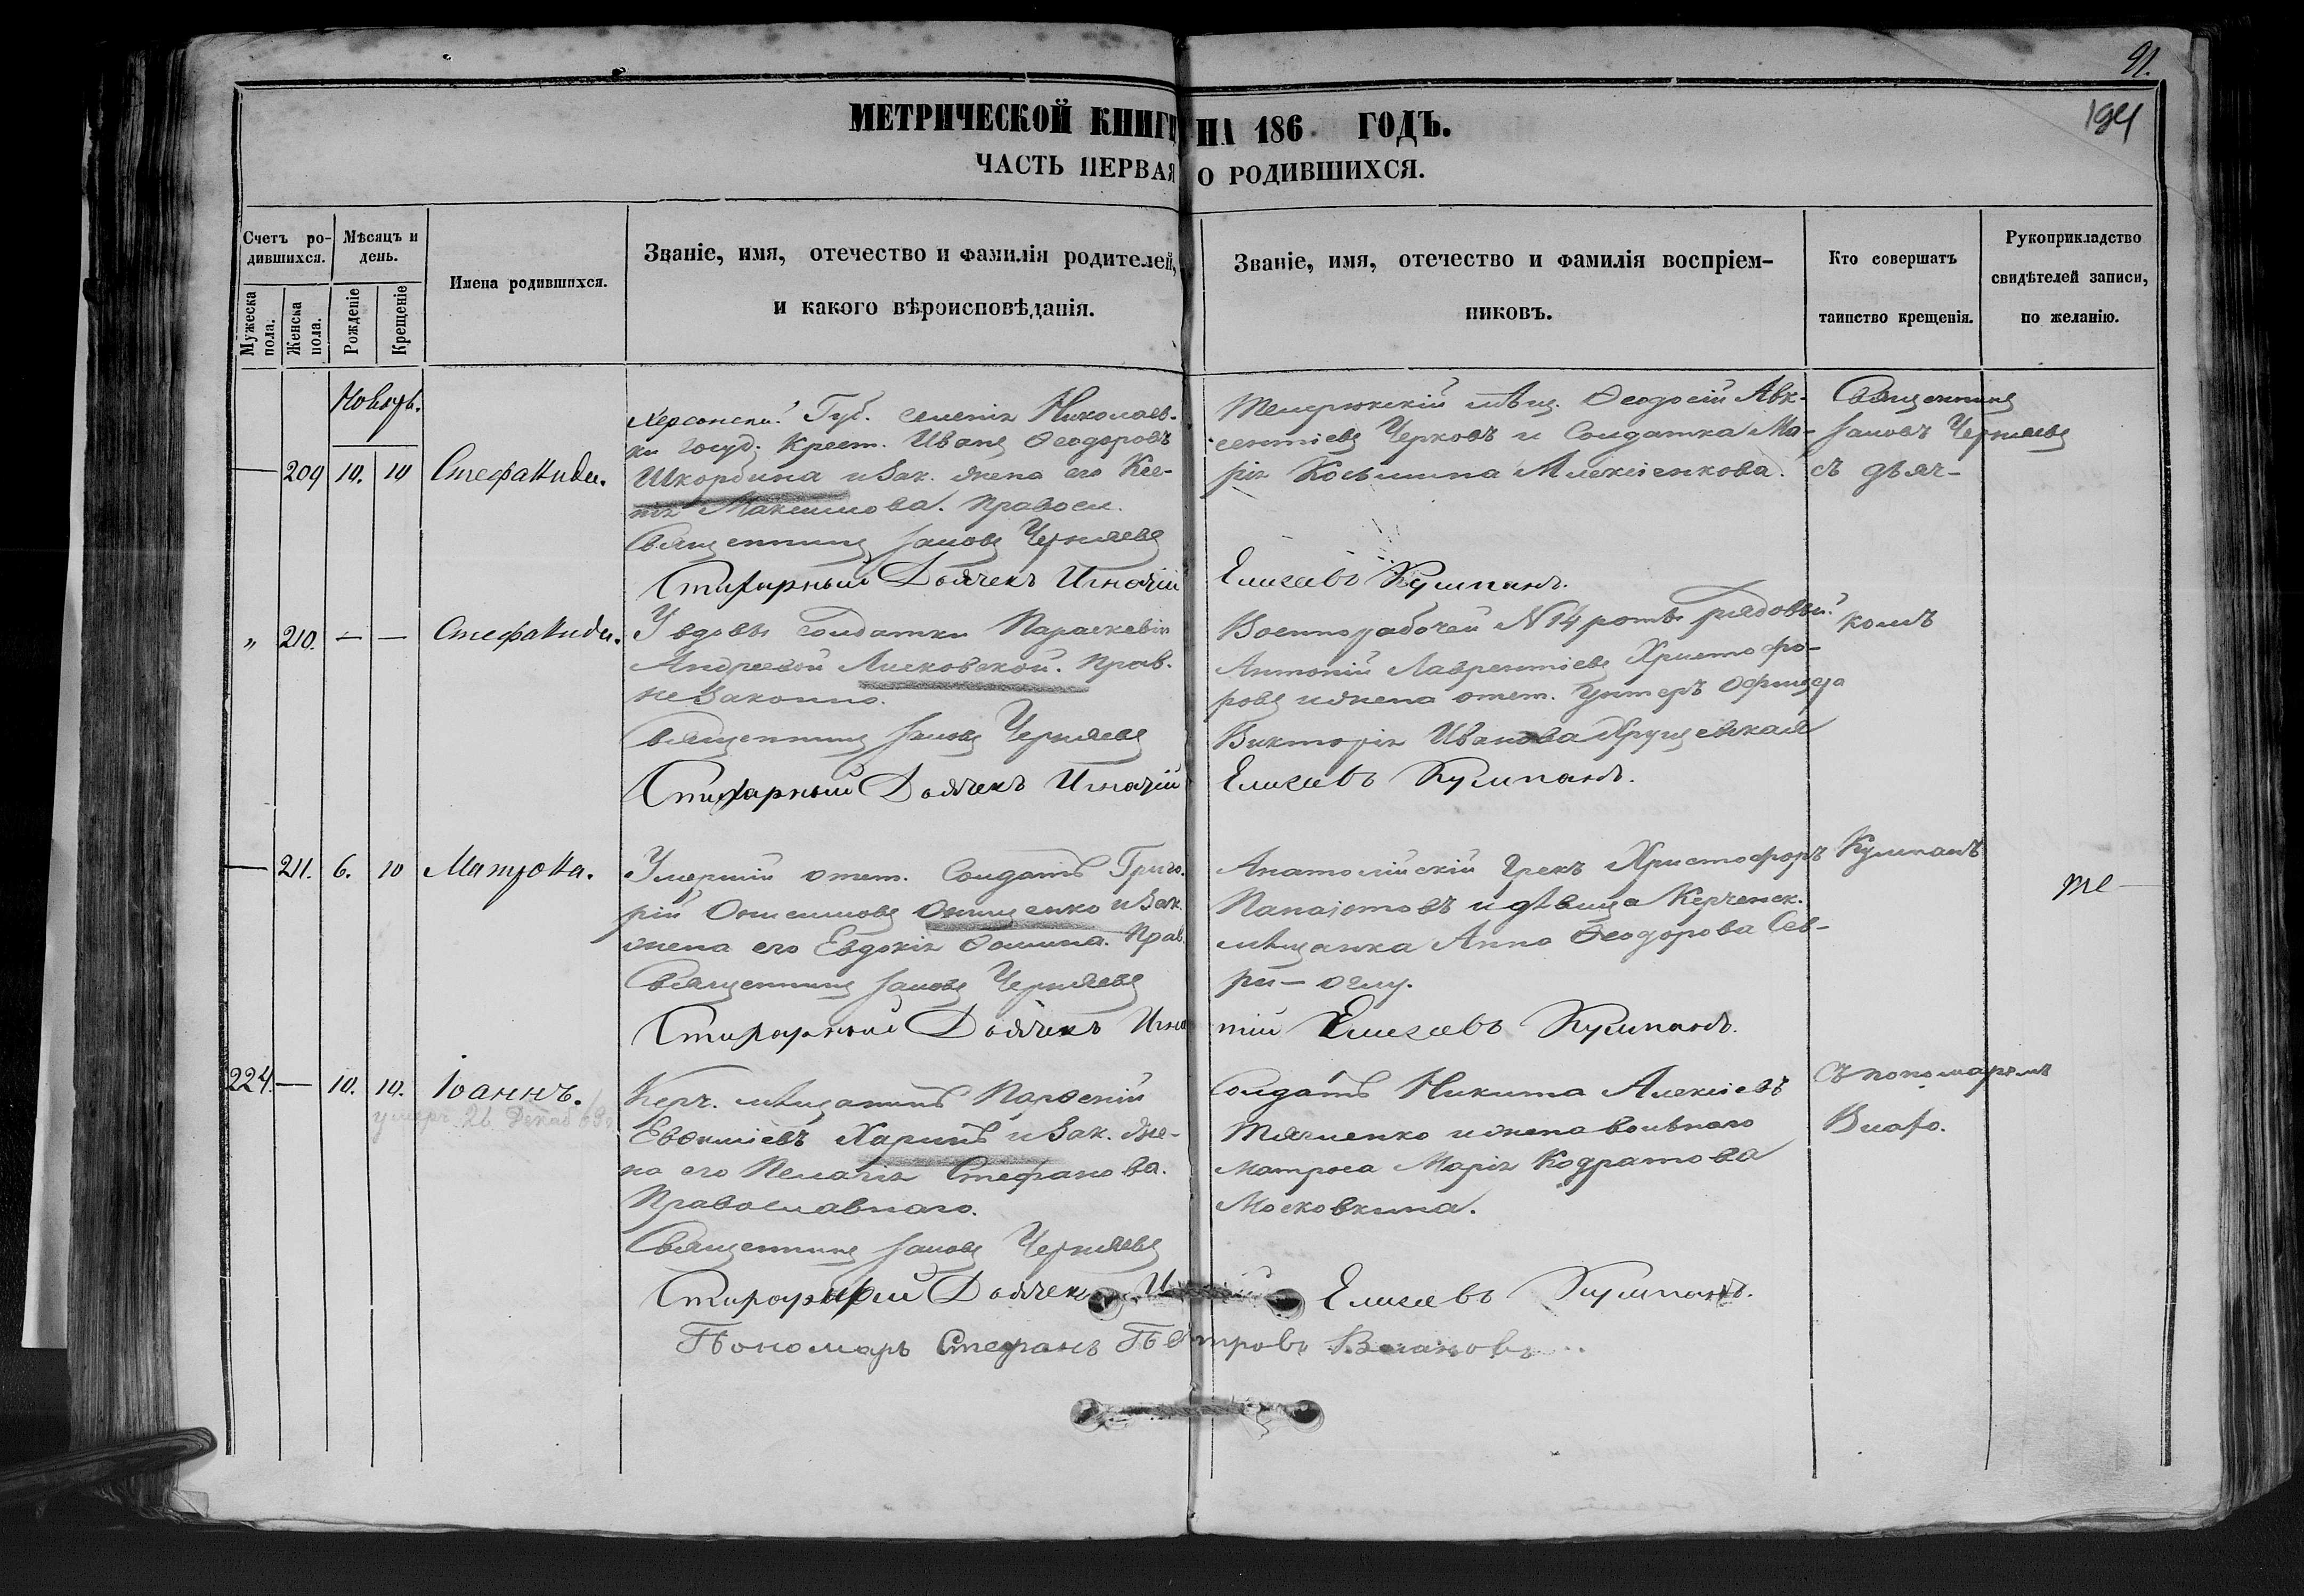 91.
194
МЕТРИЧЕСКОЙ КНИГИ НА 186 ГОДЪ.
ЧАСТЬ ПЕРВАЯ О РОДИВШИХСЯ.
Счетъ ро-
дившихся.
Мужеска
пола.
Женска
пола.
Мѣсяцъ и
день.
Рожденіе
Крещеніе
Имена родившихся.
Званіе, имя, отечество и фамилія родителей,
и какого вѣроисповѣданія.
Званіе, имя, отечество и фамилія воспріем-
никовъ.
Кто совершатъ
таинство крещенія.
Рукоприкладство
свидѣтелей записи,
по желанію.
Ноябрь.
— 209 10. 10 Стефанида.
Херсонск. Губ. селенія Николаев-
ки госуд. Крест. Иванъ Ѳеодоровъ
Шкордина и Зак. жена его Ксе-
нія Максимова. Правосл.
Священникъ Іаковъ Черняевъ
Стихарный Дьячекъ Игнатій
Темрюкскій мѣщ. Ѳеодосій Авк-
сентіевъ Черковъ и Солдатка Ма-
рія Косьмина Алексіенкова.
Елисѣевъ Кулипанъ.
Священникъ
Іаковъ Черняевъ
съ дьяч-
„ 210. — — Стефанида.
У вдовы солдатки Параскевіи
Андреевой Лисковской. Прав.
незаконно.
Священникъ Іаковъ Черняевъ
Стихарный Дьячекъ Игнатій
Военнорабочей N 14 роты рядовый
Антоній Лаврентіевъ Христофо-
ровъ и жена отст. Унтеръ Офицера
Викторія Иванова Хрущевская
Елисѣевъ Кулипанъ.
комъ
— 211. 6. 10 Матрона.
Умершій отст. Солдатъ Григо-
рій Онисимовъ Онищенко и Зак.
жена его Евдокія Ѳомина. Прав.
Священникъ Іаковъ Черняевъ
Стихарный Дьячекъ Игна
Анатолійскій Грекъ Христофоръ
Панаіотовъ и дѣвица Керченск.
мѣщанка Анна Ѳеодорова Сев-
ри-оглу.
тій Елисѣевъ Кулипанъ.
Кулипанъ
те
224. — 10. 10. Іоаннъ.
умеръ 21 Декаб
Керч. мѣщанинъ Парѳеній
Евѳиміевъ Харинъ и Зак. же-
на его Пелагія Стефанова.
Православнаго.
Священникъ Іаковъ Черняевъ
Стихарный Дьячекъ
Солдатъ Никита Алексіевъ
Тячненко и жена вольнаго
матроса Марія Кодратова
Московкина.
Елисѣевъ Кулипанъ.
Съ пономаремъ
Пономарь Стефанъ Петровъ